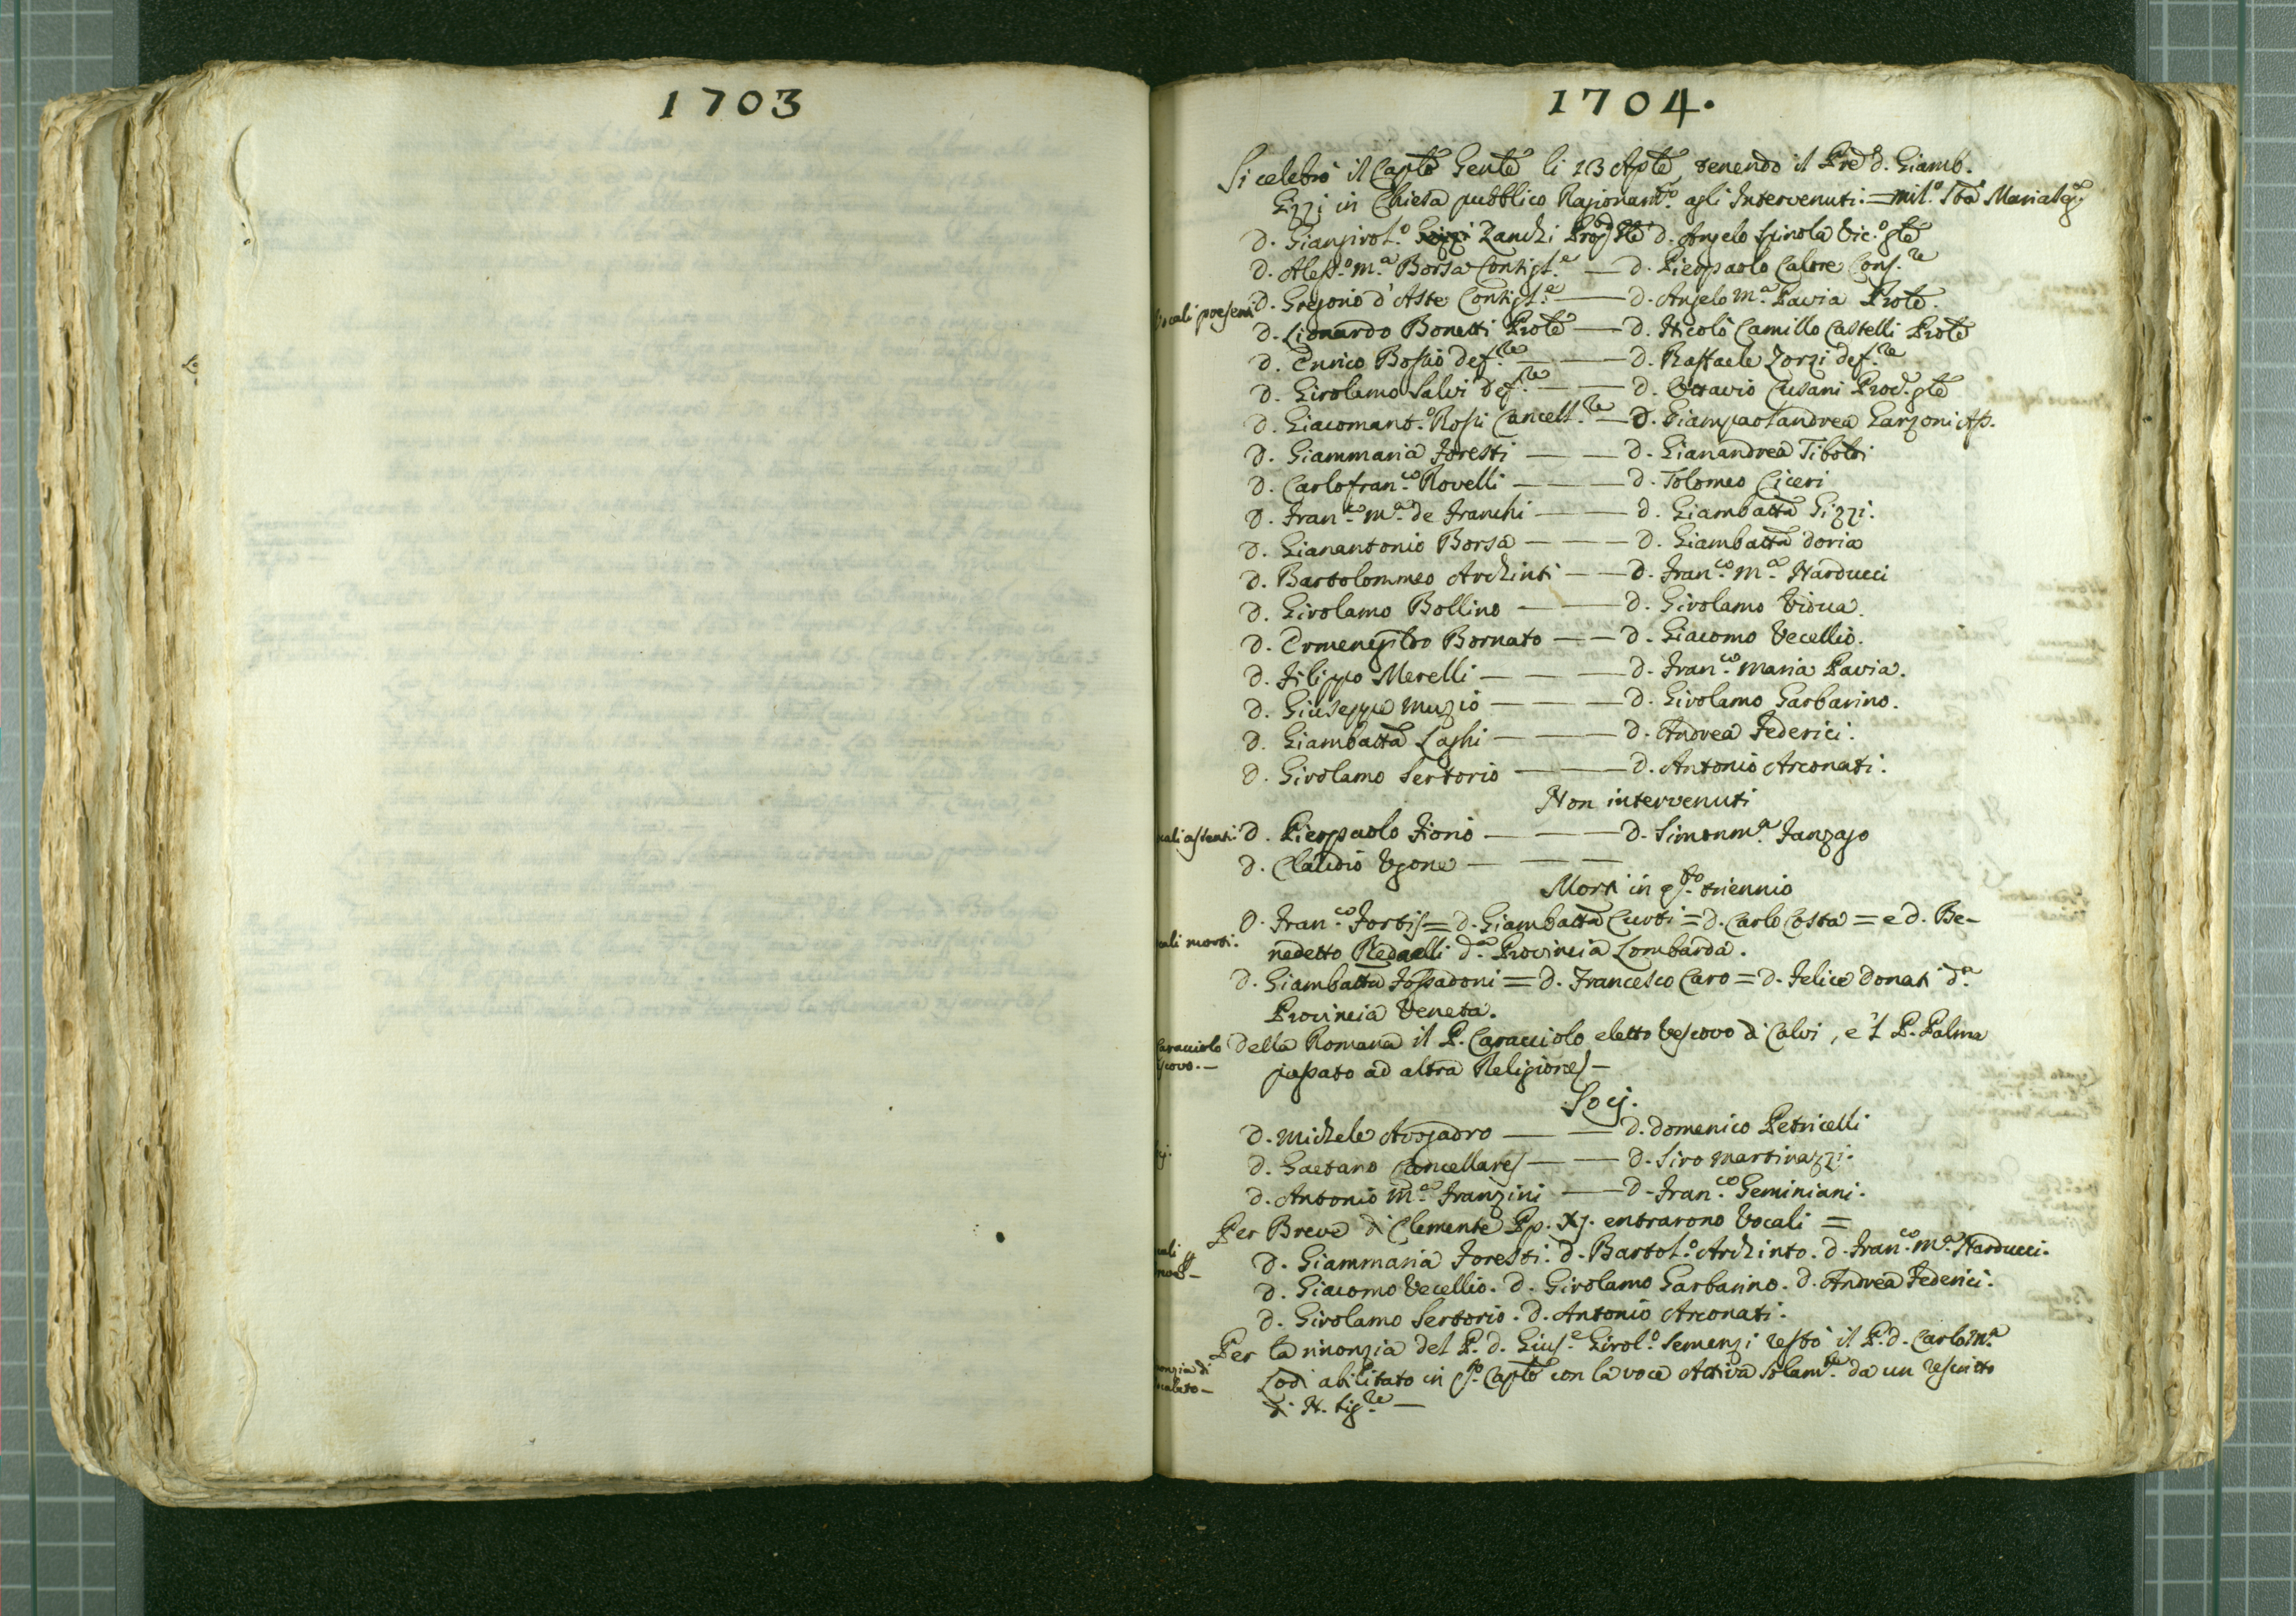 1703
1704.
Si celebrò il Caplo Genle li 13 Aple, tenendo il Pre d. Giamb.
Gizzi in Chiesa pubblico Ragionamto. agli Intervenuti: = mil.o Sta Maria Segr.
D. Giangirol.o Zanchi Prog.gle D. Angelo Spinola Vic.o gle
D. Aless.o M.a Borsa Consigl.e — D. Pierpaolo Calore Cons.re
Vocali presenti D. Gregorio d'Aste Consigl.e — D. Angelo M.a Pavia Prole.
D. Lionardo Bonetti Prole — D. Nicolò Camillo Castelli Prole
D. Enrico Bossio def.re — D. Raffaele Zorzi def.re
D. Girolamo Salvi def.re — D. Ottavio Cusani Proc. gle
D. Giacomant.o Rossi Cancell.re — D. Giampaolandrea Garzoni As.
D. Giammaria Foresti — — D. Gianandrea Tiboldi
D. Carlofran.co Rovelli — — D. Tolomeo Ciceri
D. Fran.co M.a de Franchi — — D. Giambatta Gizzi.
D. Gianantonio Borsa — — — D. Giambatta Doria
D. Bartolommeo Archinti — — D. Fran.co M.a Narducci
D. Girolamo Bollino — — D. Girolamo Vidua.
D. Ermenegildo Bornato — — D. Giacomo Vecellio.
D. Filippo Merelli — — — D. Fran.co Maria Pavia.
D. Giuseppe Muzio — — — D. Girolamo Garbarino.
D. Giambatta Laghi — — — D. Andrea Federici.
D. Girolamo Sertorio — — D. Antonio Arconati.
Non intervenuti
cali assenti: D. Pierpaolo Fiorio — — — D. Simonm.a Fanzago
D. Claudio Ugone — — —
Morti in q.sto triennio
D. Fran.co Fortis = D. Giambatta Curti = D. Carlo Costa = e D. Be-
cali morti. nedetto Redaelli d.a Provincia Lombarda.
D. Giambatta Fossadoni = D. Francesco Caro = D. Felice Donati d.a
Provincia Veneta.
Caracciolo Della Romana il P. Caracciolo eletto Vescovo di Calvi, e 'l P. Palma
scovo. — passato ad altra Religione —
Socj.
D. Michele Avogadro — — D. Domenico Petricelli
cj. D. Gaetano Cancellares — — D. Siro Martinazzi.
D. Antonio M.a Franzini — — D. Fran.co Geminiani.
Per Breve di Clemente Pp. XJ. entrarono Vocali =
cali D. Giammaria Foresti. D. Bartol.o Archinto. D. Fran.co M.a Narducci.
D. Giacomo Vecellio. D. Girolamo Garbarino. D. Andrea Federici.
D. Girolamo Sertorio. D. Antonio Arconati.
Per la rinonzia del P. D. Gius.e Girol.o Semenzi restò il P. D. Carlo M.a
nonzia di Lodi abilitato in q.sto Caplo con la voce Attiva solam.te da un rescritto
calato — di N. Sig.re —